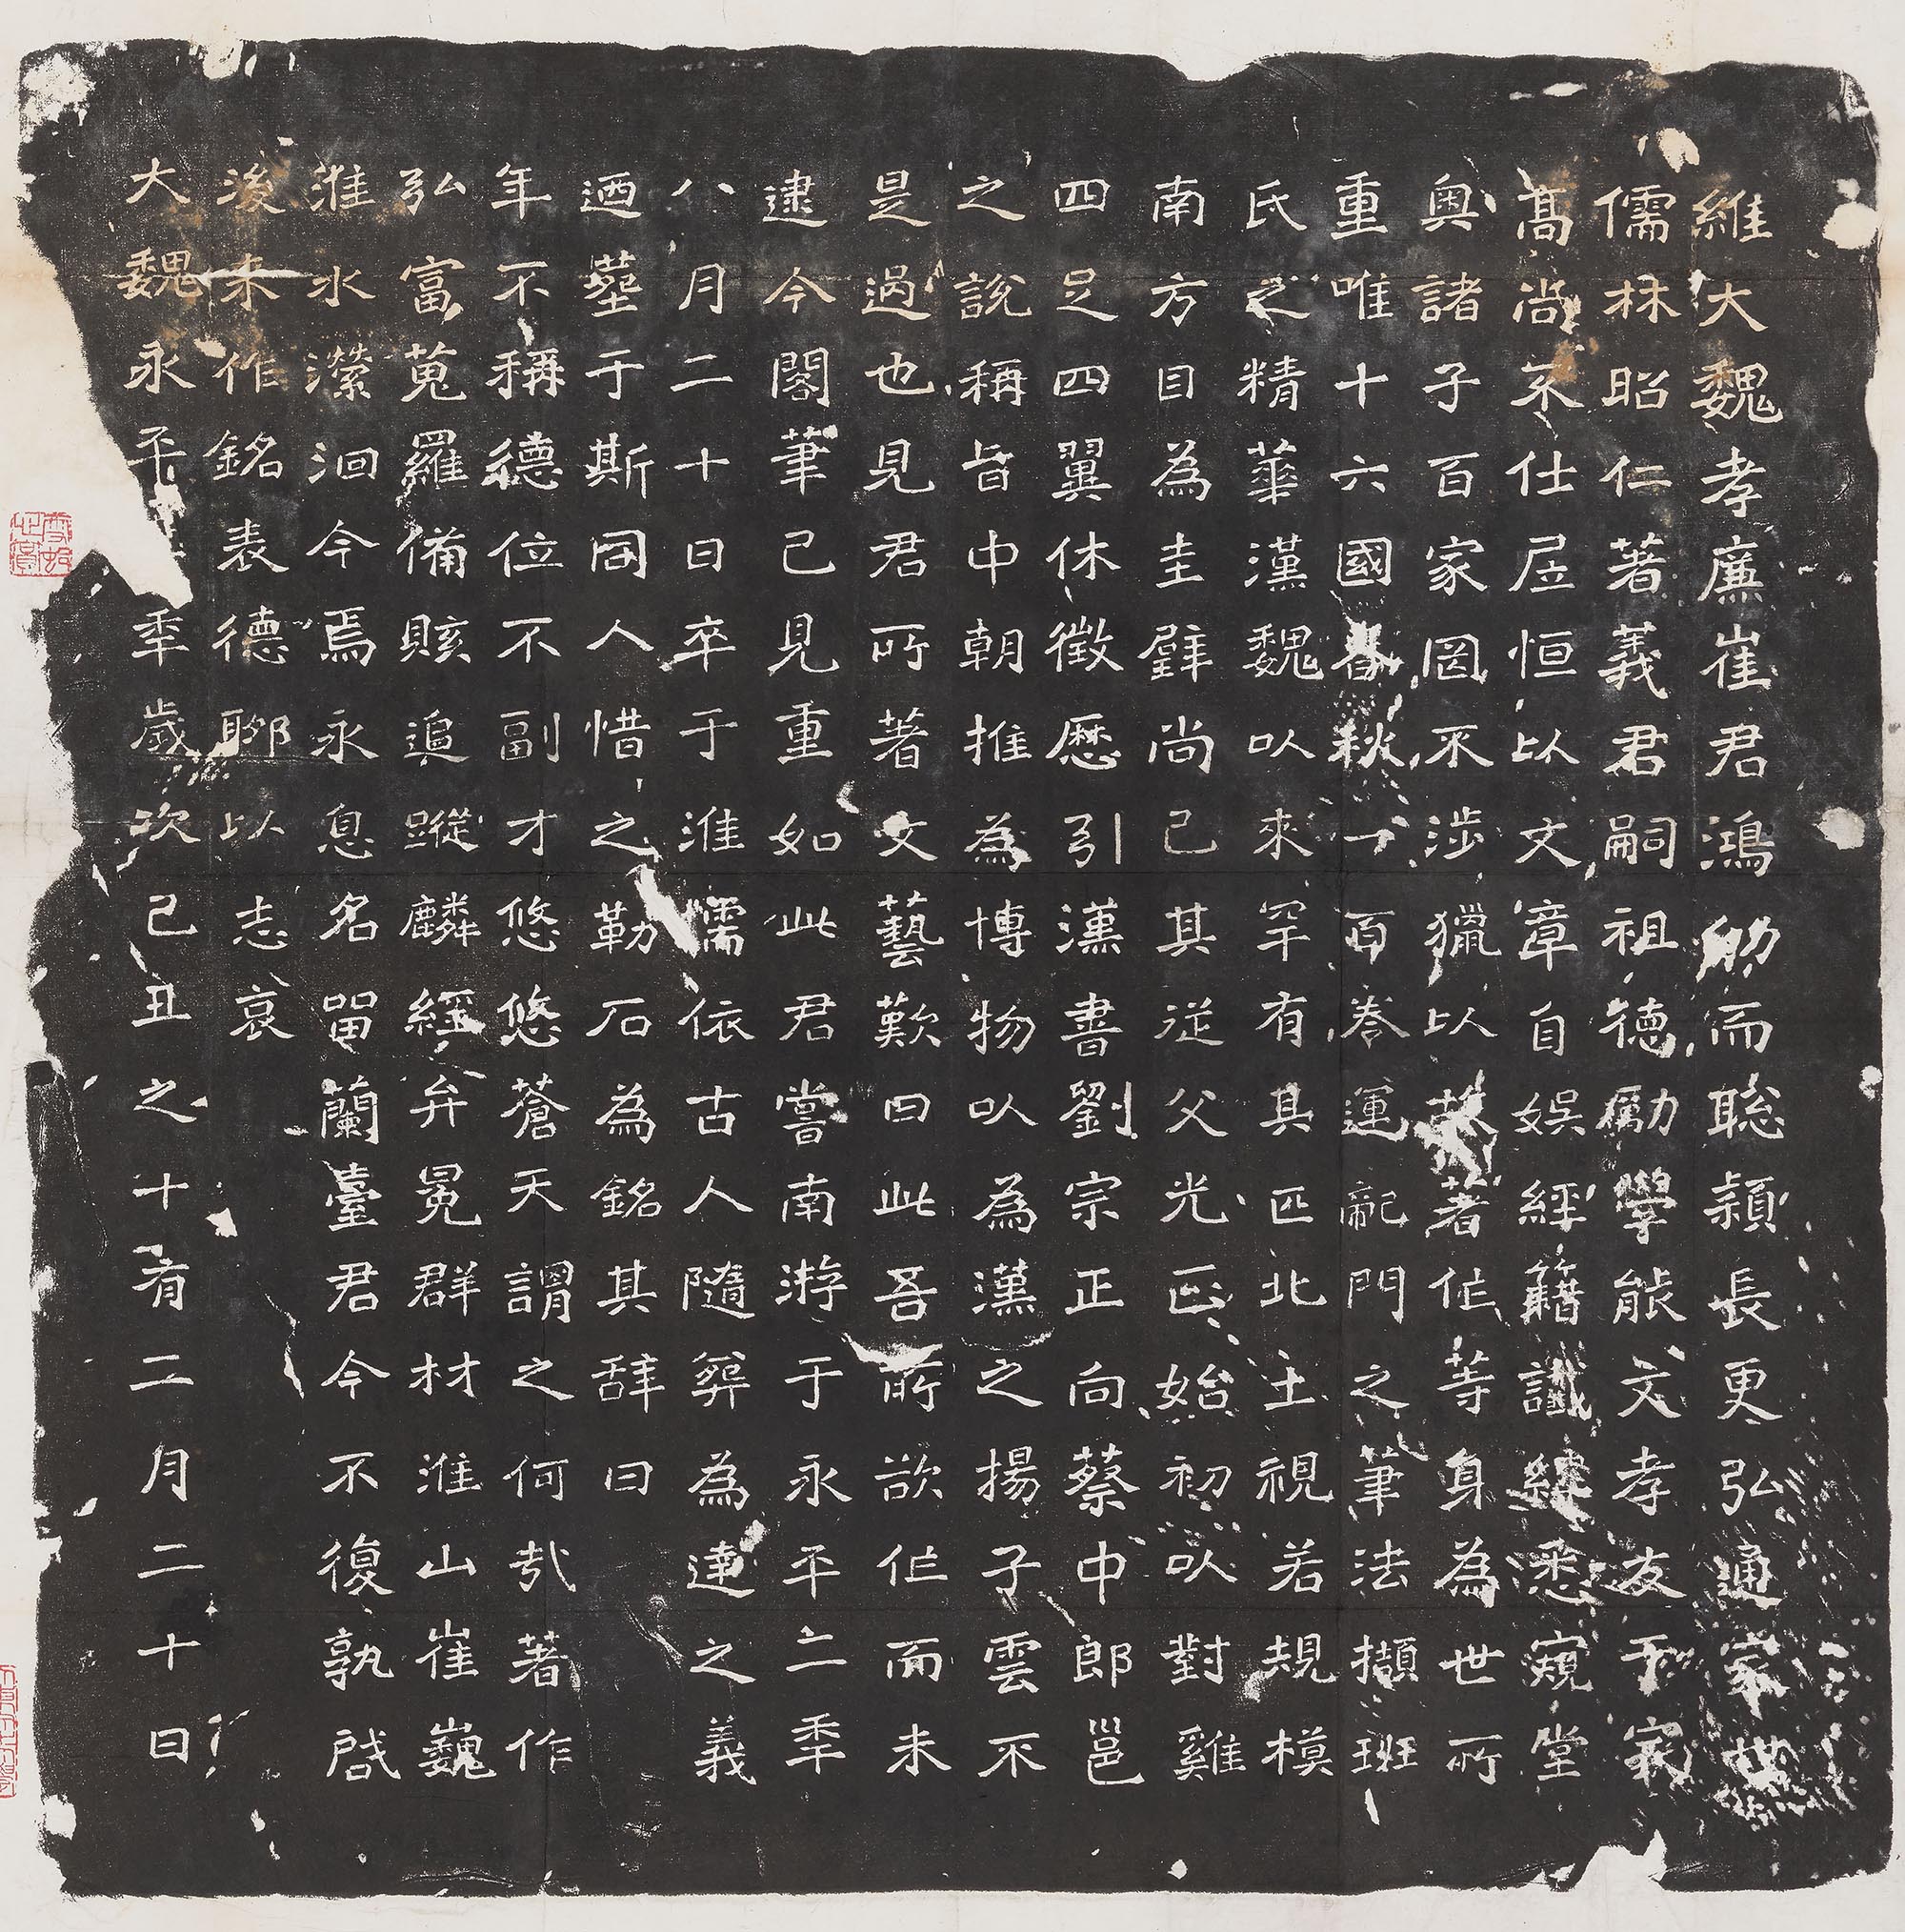 維大魏孝廉崔君鴻幼而聡穎長更弘通家世
儒林昭仁著義君嗣祖德勵學能文孝友于家
髙尚不仕居恒以文章自娛經籍讖緯悉窺堂
奥諸子百家罔不涉獵以故著作等身為世所
重唯十六國春秋一百卷運龍門之筆法擷班
氏之精華漢魏以來罕有其匹北土視若規模
南方目為圭璧尚已其從父光正始初以對雞
四足四翼休徵歷引漢書劉宗正向蔡中郎邕
之說稱旨中朝推為博物以為漢之揚子雲不
是過也見君所著文藝歎曰此吾所欲作而未
逮今閣筆已見重如此君嘗南游于永平二年
八月二十日卒于淮濡依古人隨葬為達之義
迺塟于斯同人惜之勒石為銘其辭曰
年不稱德位不副才悠悠蒼天謂之何哉著作
弘富蒐羅備賅追蹤麟經弁冕群材淮山崔巍
淮水瀠洄今焉永息名留蘭臺君今不復孰啟
後来作銘表德聊以志哀
大魏永平二年歲次己丑之十有二月二十日